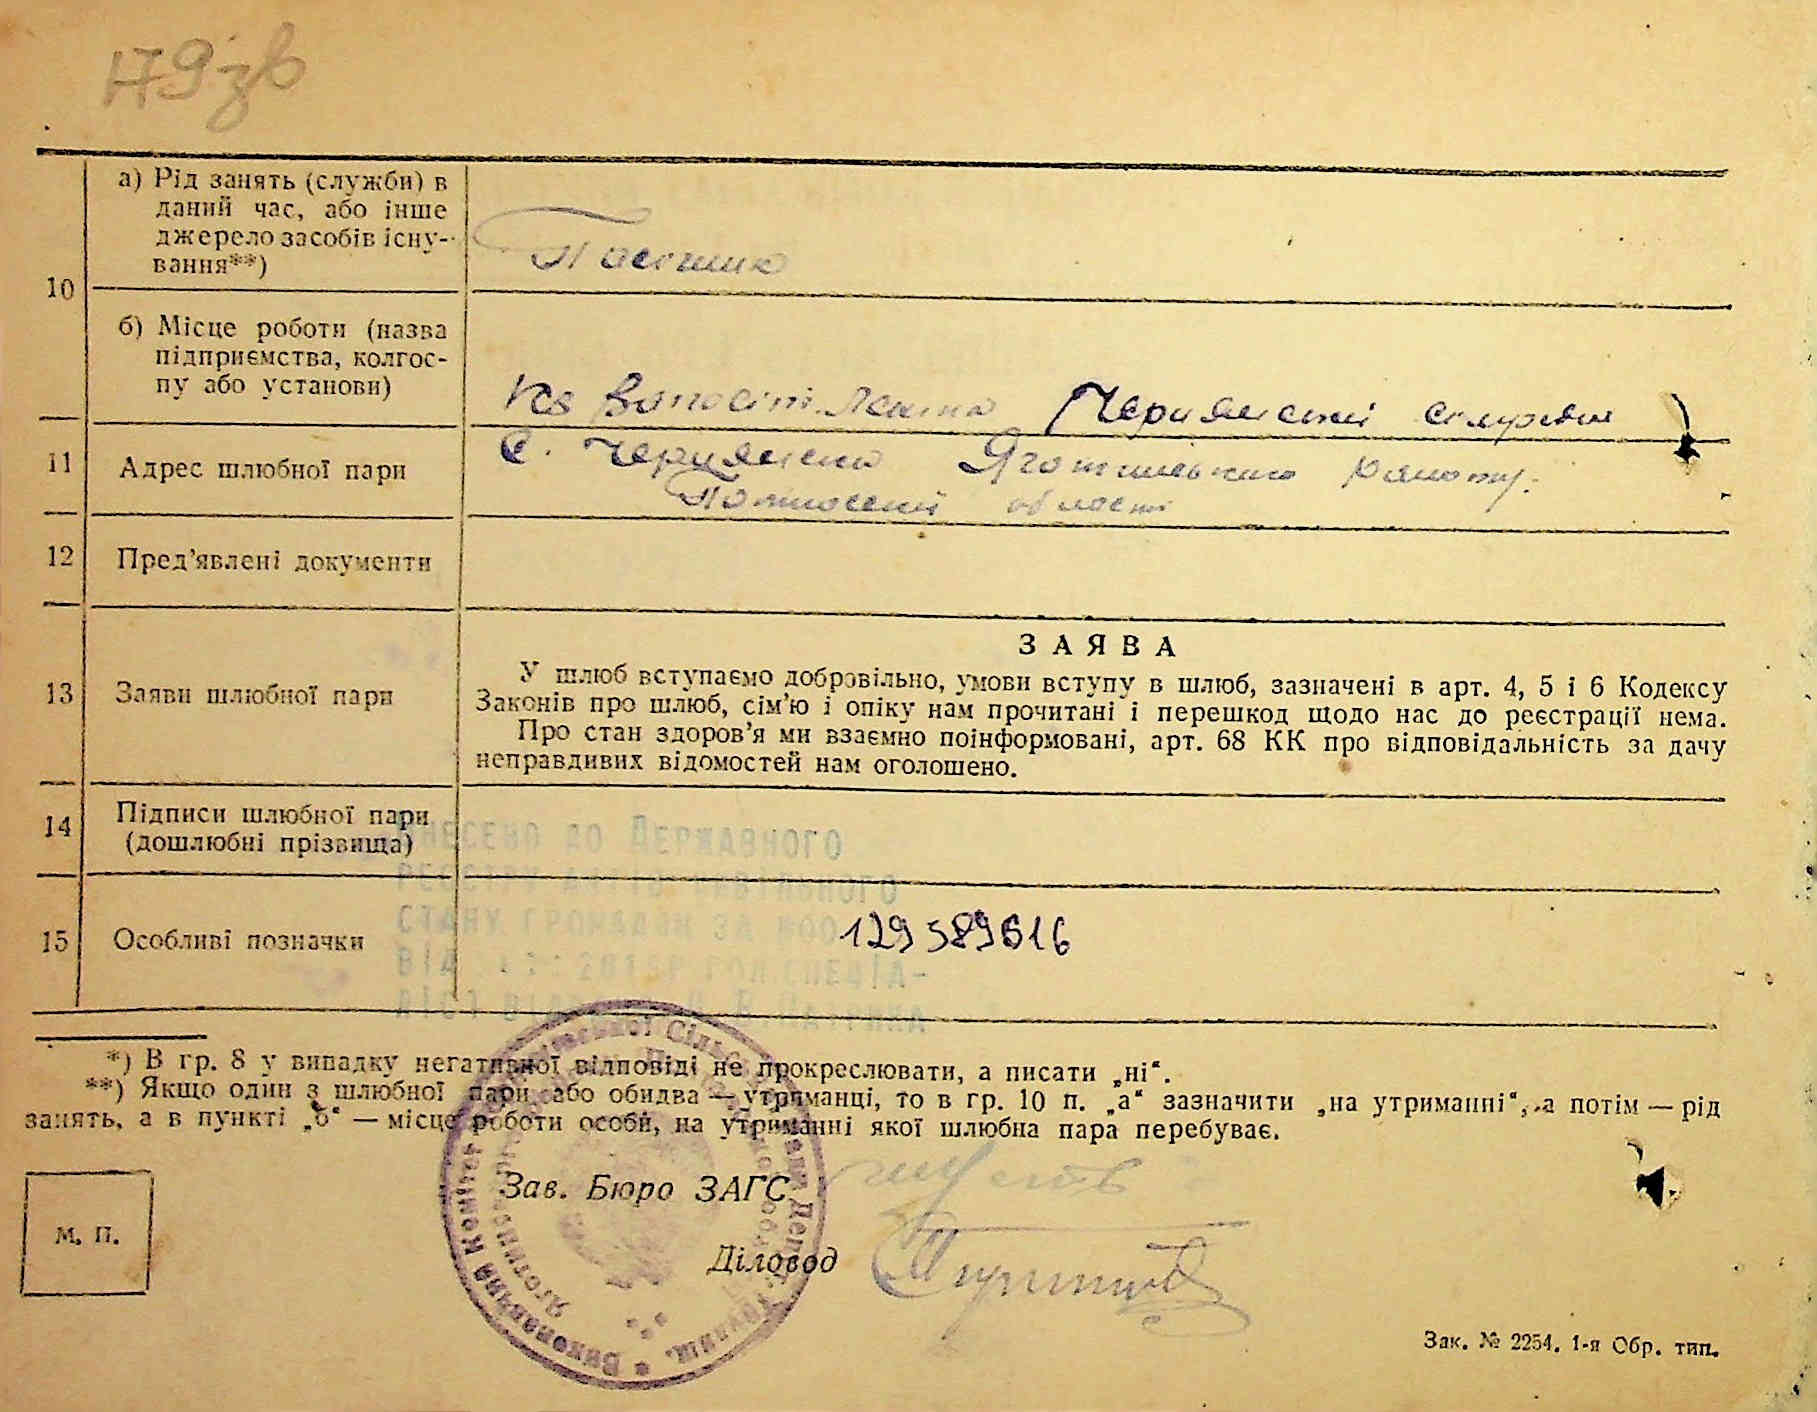 179 зв
10
а) Рід занять (служби) в
даний час, або інше
джерело засобів існу-
вання**)
б) Місце роботи (назва
підприємства, колгос-
пу або установи)
11
Адрес шлюбної пари
с. Яготинського району
області
12
Пред'явлені документи
13
Заяви шлюбної пари
ЗАЯВА
У шлюб вступаємо добровільно, умови вступу в шлюб, зазначені в арт. 4, 5 і 6 Кодексу
Законів про шлюб, сім'ю і опіку нам прочитані і перешкод щодо нас до реєстрації нема.
Про стан здоров'я ми взаємно поінформовані, арт. 68 КК про відповідальність за дачу
неправдивих відомостей нам оголошено.
14
Підписи шлюбної пари
(дошлюбні прізвища)
ДО ДЕРЖАВНОГО
РЕЄСТРУ АКТІВ ЦИВІЛЬНОГО
СТАНУ ГРОМАДЯН ЗА №00 129589616
15
Особливі позначки
*) В гр. 8 у випадку негативної відповіді не прокреслювати, а писати „ні“.
**) Якщо один з шлюбної пари або обидва — утриманці, то в гр. 10 п. „а“ зазначити „на утриманні“, а потім — рід
занять, а в пункті „б“ — місце роботи особи, на утриманні якої шлюбна пара перебуває.
Зав. Бюро ЗАГС
Діловод
М. П.
Виконавчий Комітет
Зак. № 2254. 1-я Обр. тип.